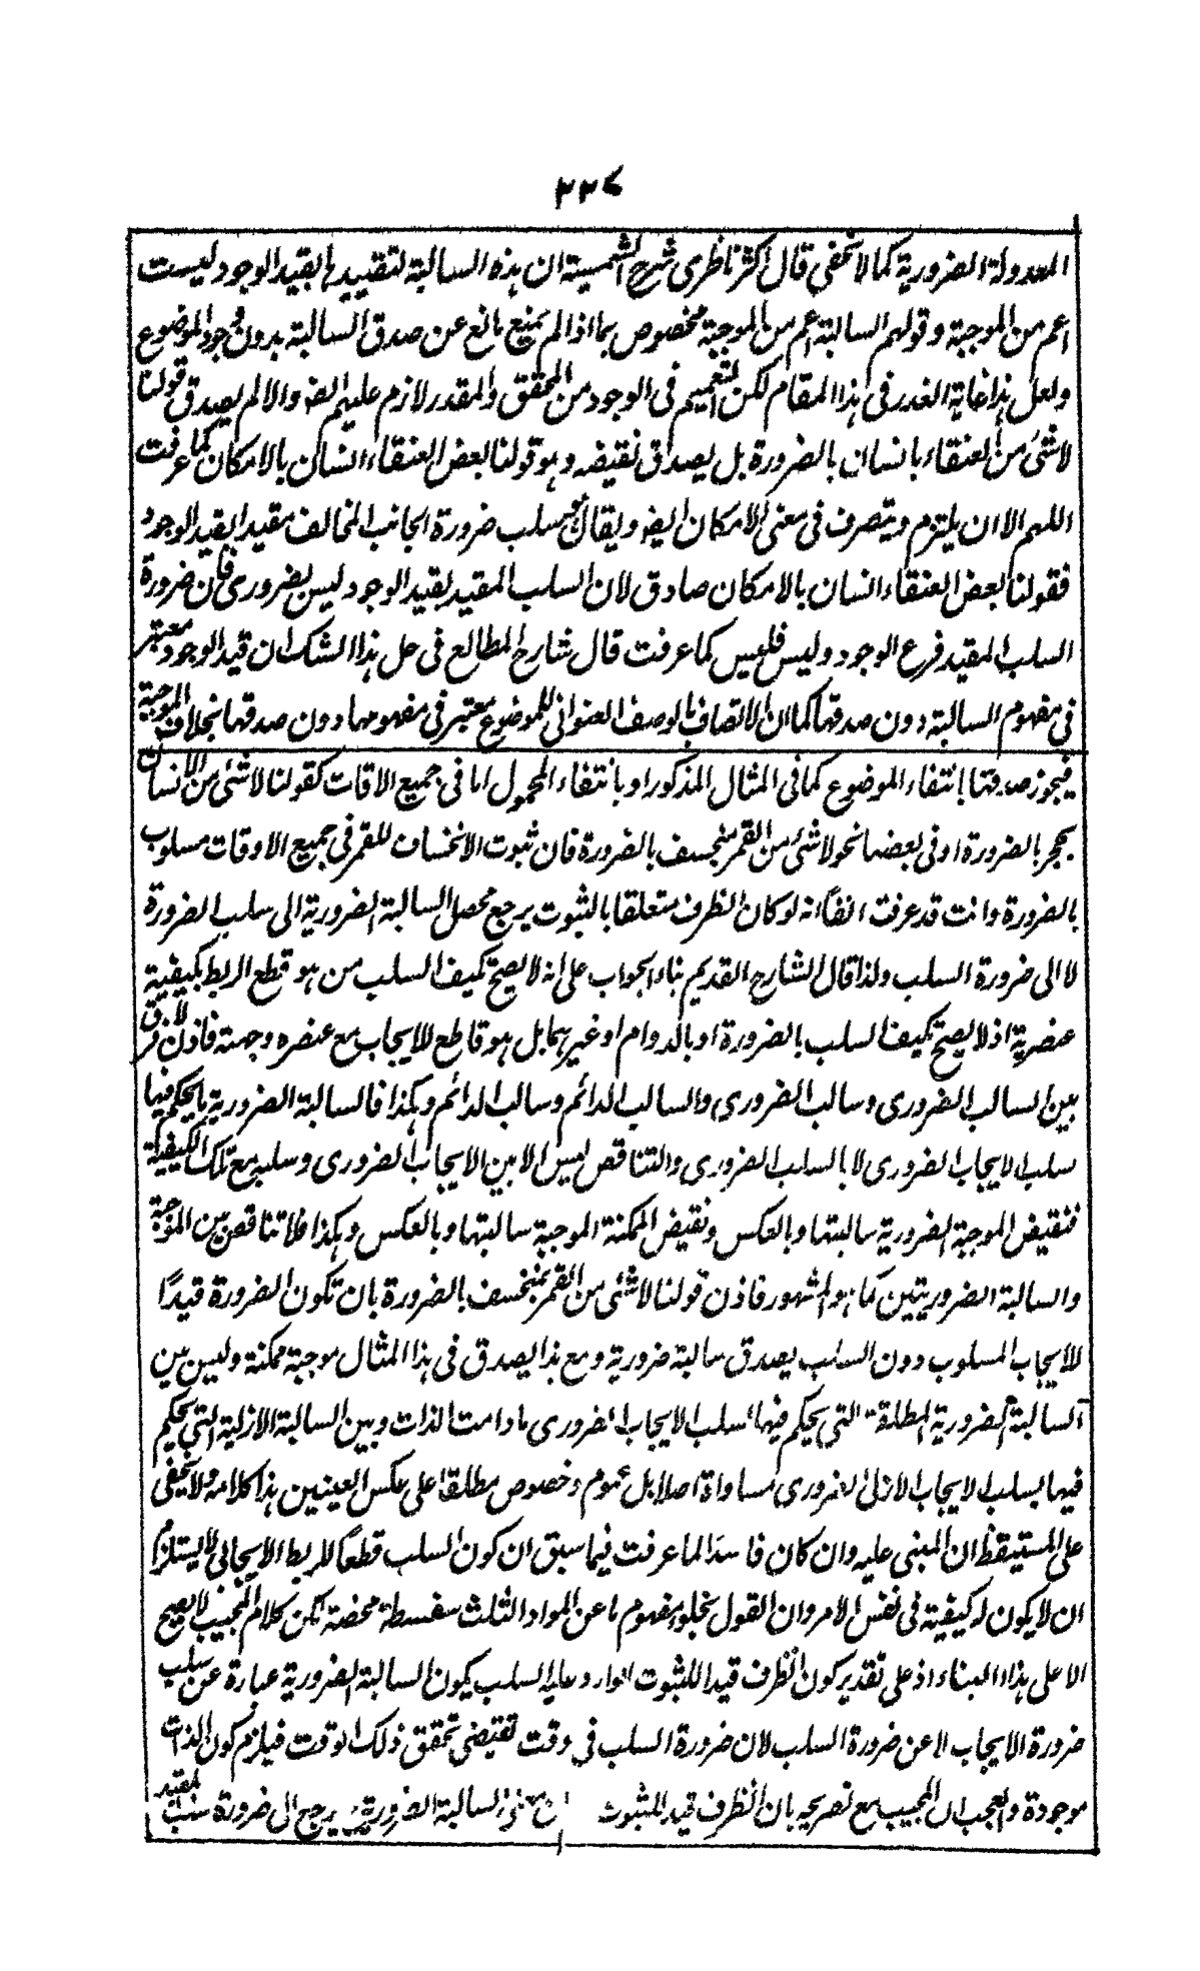 ٢٢٧
المعدولة الضرورية كما لا يخفى قال اكثر ناظرى شرح الشمسية ان هذه السالبة لتقييدها بقيد الوجود ليست
اعم من الموجبة وقولهم السالبة اعم من الموجبة مخصوص بما اذا لم يمنع مانع عن صدق السالبة بدون وجود الموضوع
ولعل هذا غاية العذر فى هذا المقام لكن التعميم فى الوجود من المحقق والمقدر لازم عليهم ايضا والا لم يصدق قولنا
لا شئ من العنقاء بانسان بالضرورة بل يصدق نقيضه وهو قولنا بعض العنقاء انسان بالامكان كما عرفت
اللهم الا ان يلتزم ويتصرف فى معنى الامكان ايضا ويقال سلب ضرورة الجانب المخالف مقيدا بقيد الوجود
فقولنا بعض العنقاء انسان بالامكان صادق لان السلب المقيد بقيد الوجود ليس بضرورى فان ضرورة
السلب المقيد فرع الوجود وليس فليس كما عرفت قال شارح المطالع فى حل هذا الشك ان قيد الوجود معتبر
فى مفهوم السالبة دون صدقها كما ان الاتصاف بالوصف العنوانى للموضوع معتبر فى مفهومها دون صدقها بخلاف الموجبة
فيجوز صدقها بانتفاء الموضوع كما فى المثال المذكور او بانتفاء المحمول اما فى جميع الاقات كقولنا لا شئ من الانسان
بحجر بالضرورة او فى بعضها نحو لا شئ من القمر بمنخسف بالضرورة فان ثبوت الانخساف للقمر فى جميع الاوقات مسلوب
بالضرورة وانت قد عرفت انفا انه لو كان الظرف متعلقا بالثبوت يرجع محصل السالبة الضرورية الى سلب الضرورة
لا الى ضرورة السلب ولذا قال الشارح القديم بناء الجواب على انه لا يصح تكيف السلب من هو قطع الربط بكيفية
عنصرية اذ لا يصح تكيف السلب بالضرورة او بالدوام او غيرهما بل هو قاطع للايجاب مع عنصره وجهته فاذن لا فرق
بين السالب الضرورى وسالب الضرورى والسالب الدائم وسالب الدائم وهكذا فالسالبة الضرورية ما يحكم فيها
سلب الايجاب الضرورى لا بالسلب الضرورى والتناقض ليس الا بين الايجاب الضرورى وسلبه مع تلك الكيفية
فنقيض الموجبة الضرورية سالبتها وبالعكس ونقيض الممكنة الموجبة سالبتها وبالعكس وهكذا فلا تناقض بين الموجبة
والسالبة الضروريتين كما هو المشهور فاذن قولنا لا شئ من القمر بمنخسف بالضرورة بان تكون الضرورة قيدًا
للايجاب المسلوب دون السلب يصدق سالبة ضرورية ومع هذا يصدق فى هذا المثال موجبة ممكنة وليس بين
السالبة الضرورية المطلقة التى يحكم فيها بسلب الايجاب الضرورى ما دامت الذات وبين السالبة الازلية التى يحكم
فيها بسلب الايجاب الازلى الضرورى مساواة اصلا بل عموم وخصوص مطلقا على عكس العينين هذا كلامه ولا يخفى
على المستيقظ ان المبنى عليه وان كان فاسدا لما عرفت فيما سبق ان كون السلب قطعًا للربط الايجابى لا يستلزم
ان لا يكون له كيفية فى نفس الامر وان القول بخلو مفهوم ما عن المواد الثلث سفسطة محضة لكن كلام المجيب لا يصح
الا على هذا البناء اذ على تقدير كون الظرف قيدا للثبوت الوارد عليه السلب يكون السالبة الضرورية عبارة عن سلب
ضرورة الايجاب لا عن ضرورة السلب لان ضرورة السلب فى وقت تقتضى تحقق ذلك الوقت فيلزم كون الذات
موجودة والعجب ان المجيب مع تصريحه بان الظرف قيد للثبوت معنى السالبة الضرورية يرجع الى ضرورة سلب المقيد